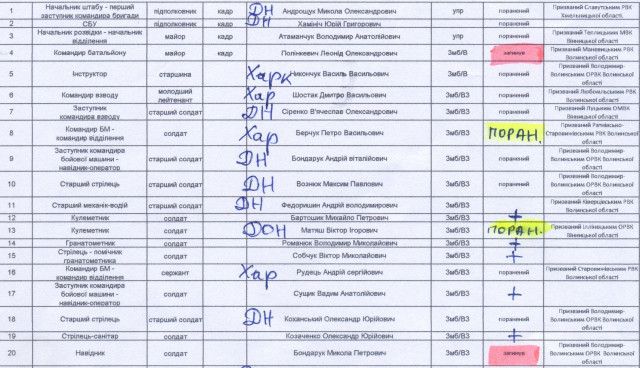 1 Начальник штабу - перший заступник командира бригади підполковник кадр ДН Андрощук Микола Олександрович упр поранений Призваний Славутським РВК Хмельницької області.
2 СБУ підполковник кадр ДН Хамініч Юрій Григорович поранений
3 Начальник розвідки - начальник відділення майор кадр Атаманчук Володимир Анатолійович упр поранений Призваний Теплицьким МВК Вінницької області
4 Командир батальйону майор кадр Полінкевич Леонід Олександрович 3мб/В загинув Призваний Маневицьким РВК Волинської області
5 Інструктор старшина Харк Никончук Василь Васильович 3мб/В поранений Призваний Володимир-Волинським ОРВК Волинської області
6 Командир взводу молодший лейтенант Хар Шостак Дмитро Васильович 3мб/ВЗ поранений Призваний Любомльським РВК Волинської області
7 Заступник командира взводу старший солдат ДН Сіренко В'ячеслав Олександрович 3мб/ВЗ поранений Призваний Луцьким ОМВК Волинської області
8 Командир БМ - командир відділення старший солдат Хар Берчук Петро Васильович 3мб/ВЗ ПОРАН. Призваний Ратнівсько-Старовижівським РВК Волинської області
9 Заступник командира бойової машини - навідник-оператор старший солдат ДН Бондарук Андрій віталійович 3мб/ВЗ поранений Призваний Володимир-Волинським ОРВК Волинської області
10 Старший стрілець старший солдат ДН Вознюк Максим Павлович 3мб/ВЗ поранений Призваний Володимир-Волинським ОРВК Волинської області
11 Старший механік-водій старший солдат ДН Федоришин Андрій володимирович 3мб/ВЗ поранений Призваний Ківерцівським РВК Волинської області
12 Кулеметник солдат Бартошик Михайло Петрович 3мб/ВЗ +
13 Кулеметник солдат ДОН Матяш Віктор Ігорович 3мб/ВЗ ПОРАН. Призваний Іллінівським ОРВК Вінницької області
14 Гранатометник солдат Романюк Володимир Миколайович 3мб/ВЗ +
15 Стрілець - помічник гранатометника солдат Собчук Віктор Миколайович 3мб/ВЗ +
16 Командир БМ - командир відділення сержант Хар Рудець Андрій сергійович 3мб/ВЗ поранений Призваний Старовижівським РВК Волинської області
17 Заступник командира бойової машини - навідник-оператор солдат Сущик Вадим Анатолійович 3мб/ВЗ +
18 Старший стрілець старший солдат ДН Коханський Олександр Юрійович 3мб/ВЗ поранений Призваний Володимир-Волинським ОРВК Волинської області
19 Стрілець-санітар солдат Козаченко Олександр Юрійович 3мб/ВЗ +
20 Навідник солдат Бондарук Микола Петрович 3мб/ВЗ загинув Призваний Володимир-Волинським ОРВК Волинської області